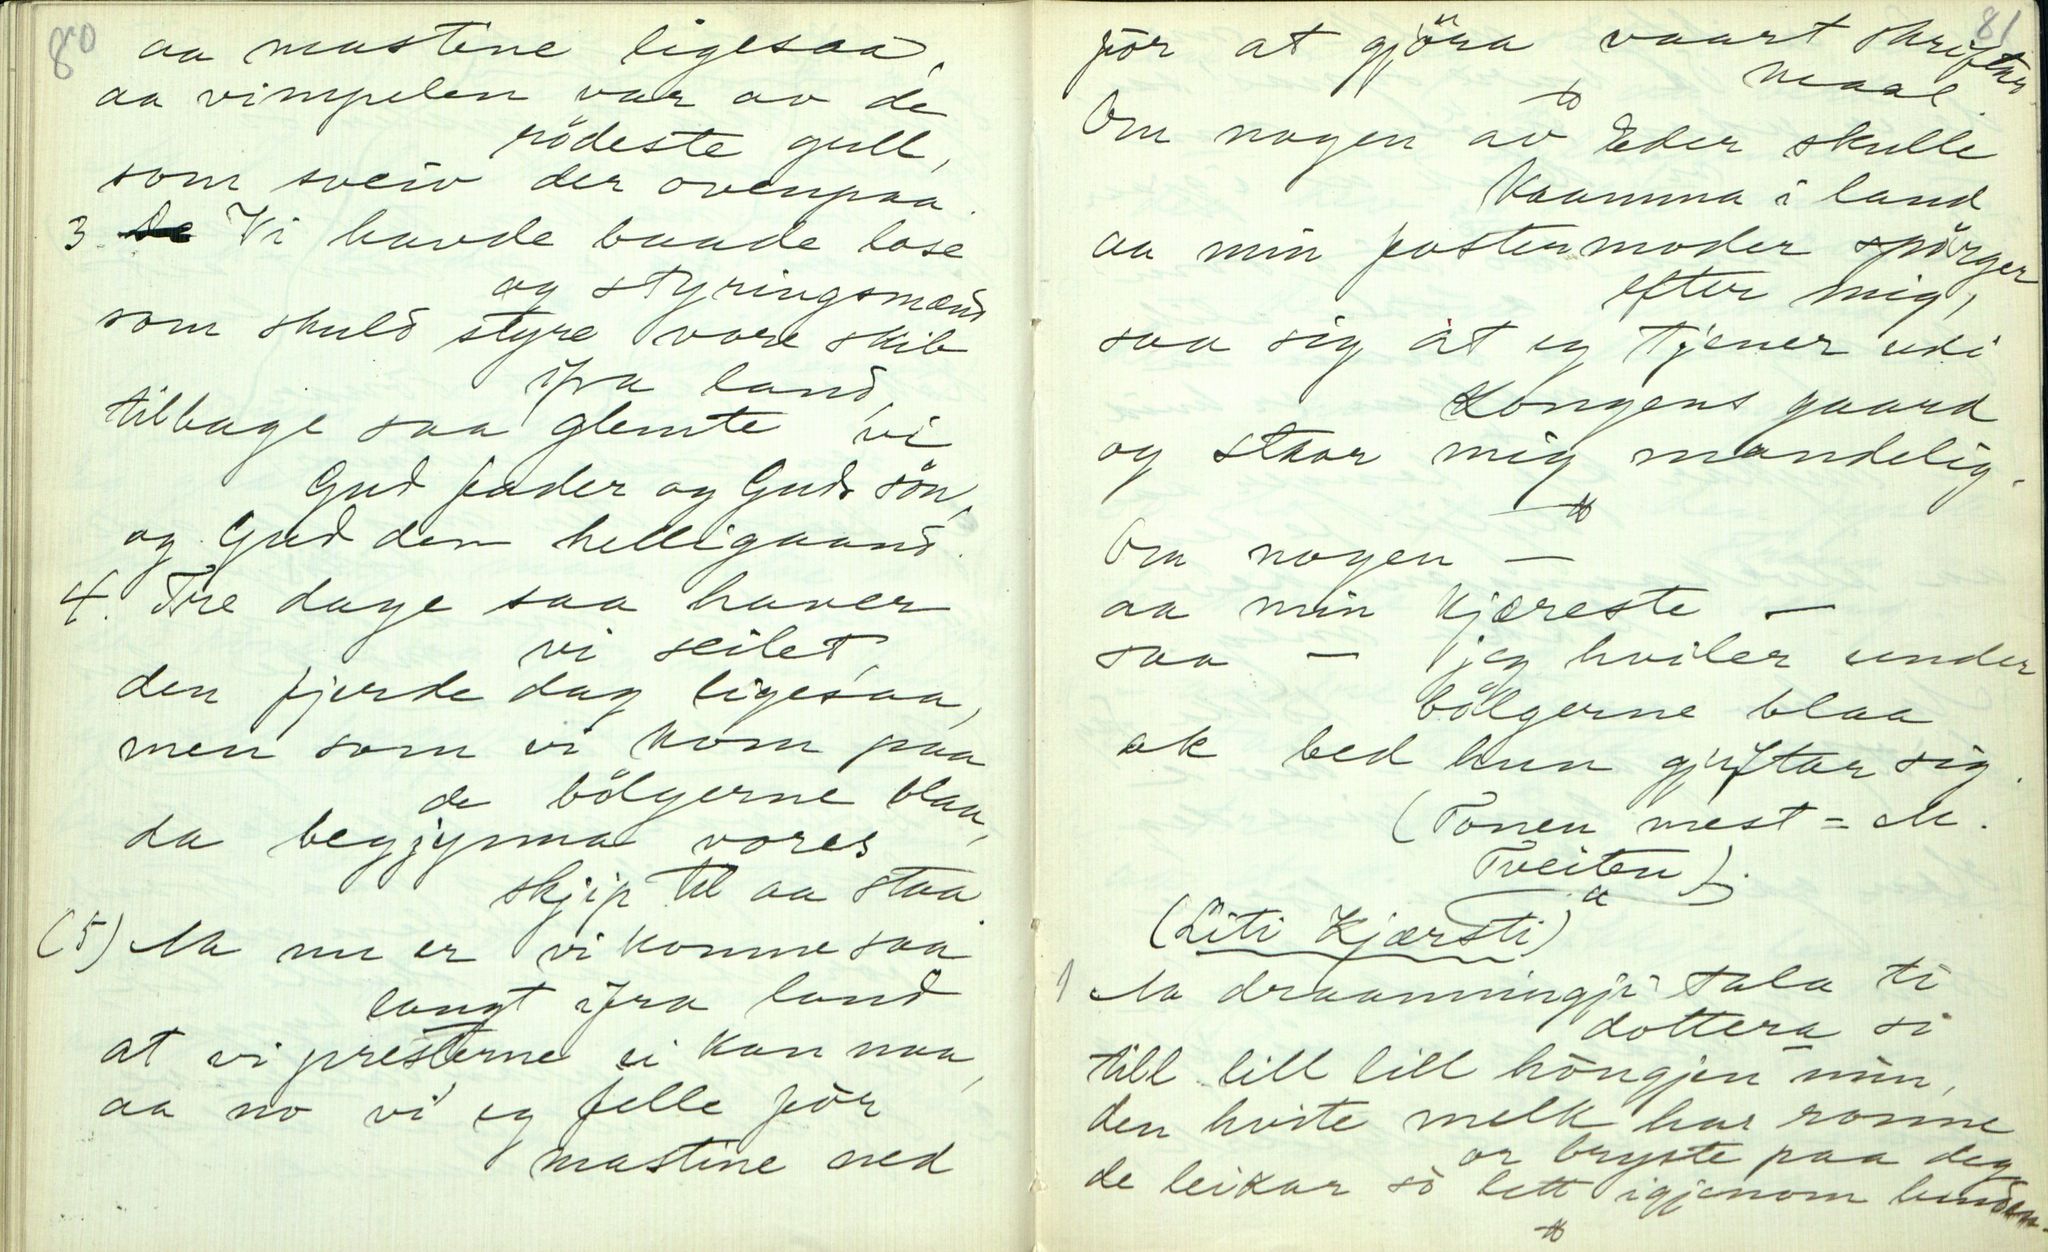 80
aa mastene ligesaa,
aa vimpelen var av de
rödeste gull,
som sveiv der ovenpaa.
3. De Vi havde baade lose
og styringsmænd
som skuld styre vore skib
ifra land,
tilbage saa glemte vi
Gud fader og Guds sön,
og Gud den helligaand.
4. Tre dage saa haver
vi seilet,
den fjerde dag ligesaa,
men som vi kom paa
de bölgerne blaa,
da begjynna vores
skjip til aa staa.
(5) Aa nu er vi komne saa
langt ifra land
at vi presterne ei kan naa,
aa no vi eg felle för
mastine ned
81
för at gjöra vaart skriftar
maal.
Om nogen av Eder skulle
kaamma i land
aa min fostermoder spörger
efter mig,
saa sig at eg tjener udi
Kongens gaard
og staar mig mandelig.
Om nogen —
aa min kjæreste —
saa — jeg hviler under
bölgerne blaa
ak bed hun gjiftar sig.
(Tonen mest = M.
Tveiten).
(Liti Kjærsti) a
1 Aa draanningji tala ti
dottera si
till lill lill höngjen min,
den hvite melk har ronne
or bryste paa deg
de leikar so lett igjenom lunden.